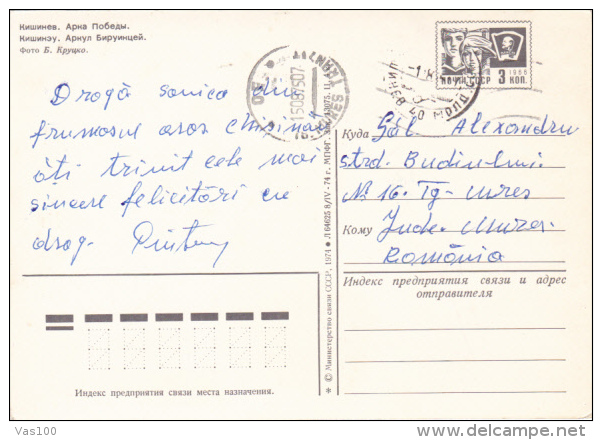 Кишинев. Арка Победы.
Кишинэу. Аркул Бируинцей.
Фото Б. Круцко.
Dragă sanica din
frumosul oraș Chișinău
îți trimit cele mai
sincere felicitări cu
drag.
ПОЧТА СССР 3 КОП.
1966
Куда Gál Alexandru
strd. Budiului
№ 16. Tg-Mureș
Кому Jude. Mureș.
România
Индекс предприятия связи и адрес
отправителя
Индекс предприятия связи места назначения.
* © Министерство связи СССР, 1974 ● Л 64625 8/IV - 74 г. МПФГ.
Vas100
delcampe.net